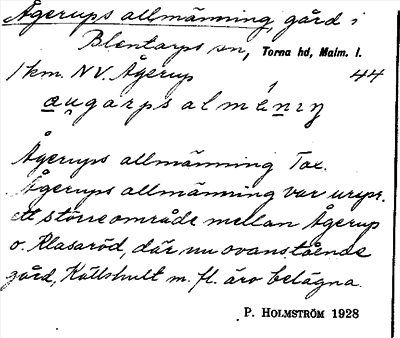 Ågerups allmänning, gård i
Blentarps sn, Torna hd, Malm. l.
1 km. NV. Ågerup 44
au̯garps almeniŋ
Ågerups allmänning Tax.
Ågerups allmänning var urspr.
ett större område mellan Ågerup
o. Klasaröd, där nu ovanstående
gård, Källshult m. fl. äro belägna.
P. HOLMSTRÖM 1928